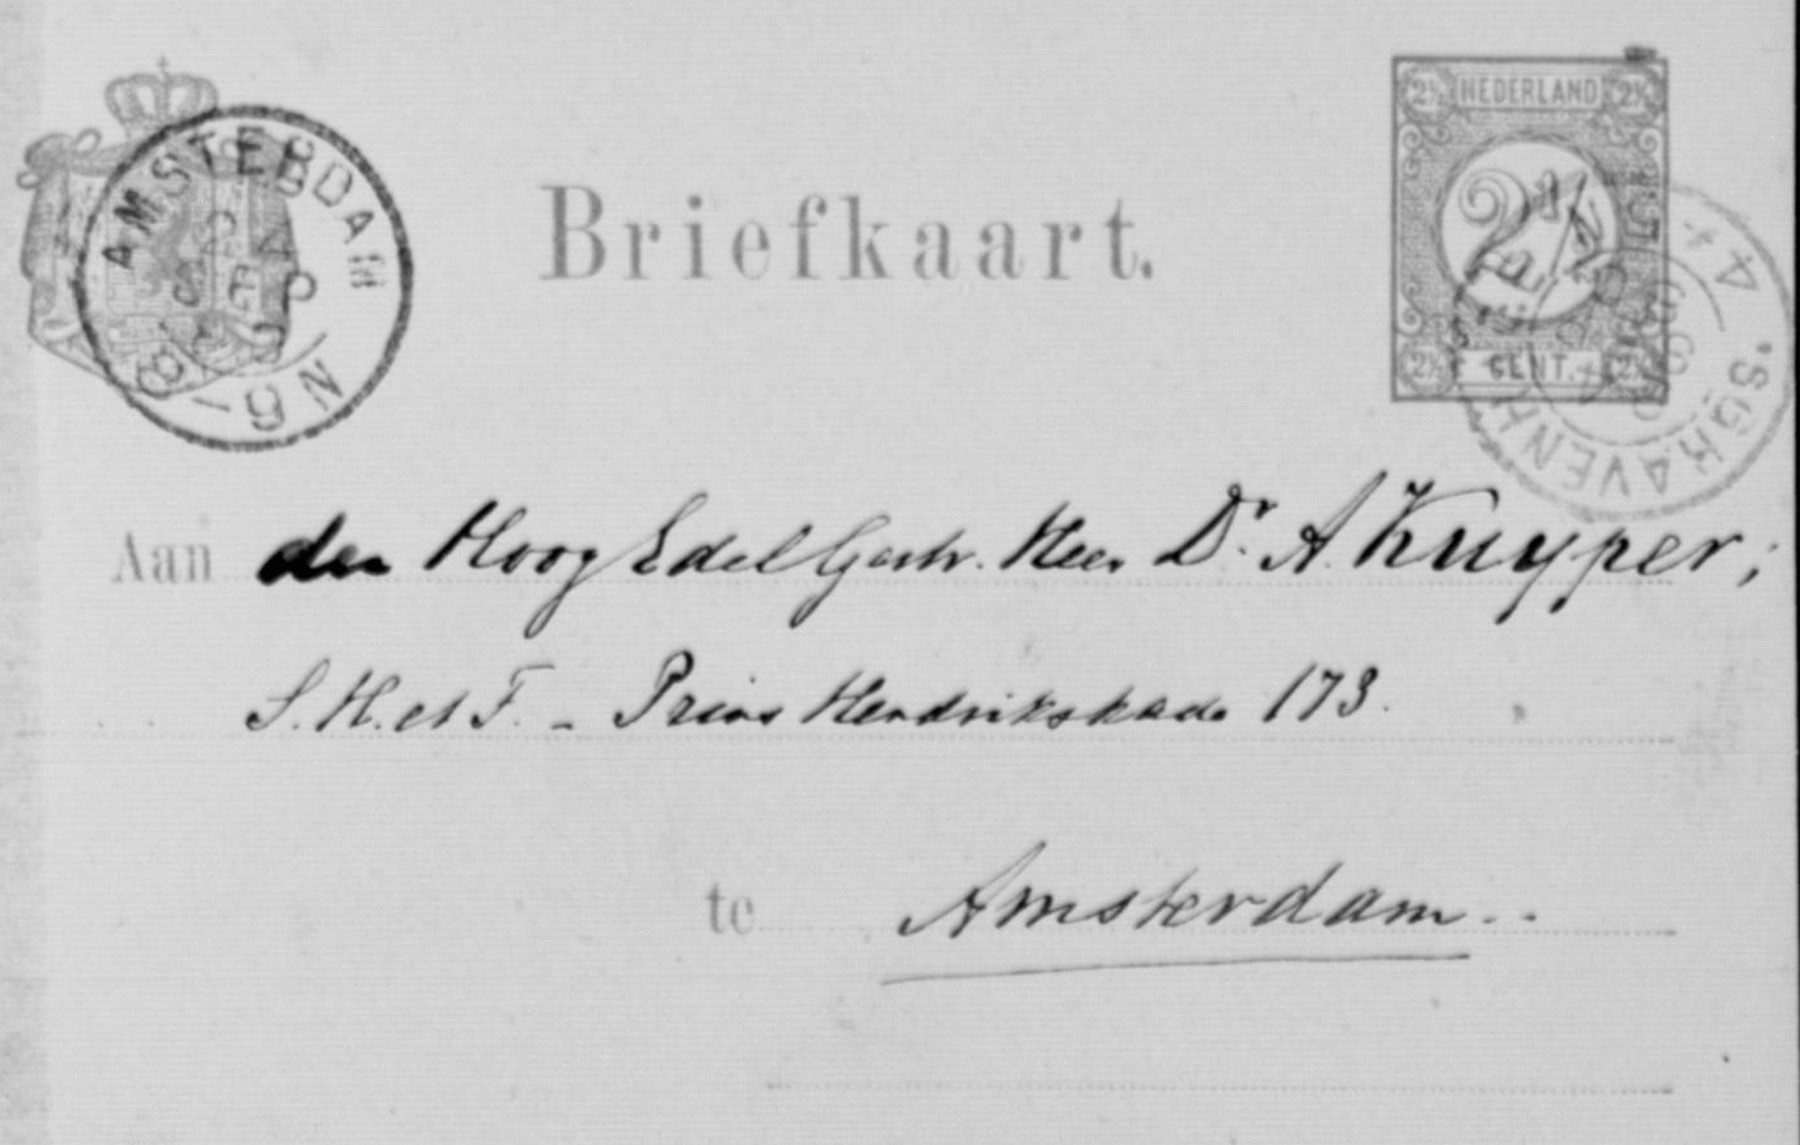 AMSTERDAM
8-9N
Briefkaart.
2½ NEDERLAND 2½
2½
2½ CENT. 2½
'SGRAVENH
Aan den HoogEdelGestr. Heer Dr. A. Kuyper;
S.H. et F. - Prins Hendrikskade 173.
te Amsterdam..